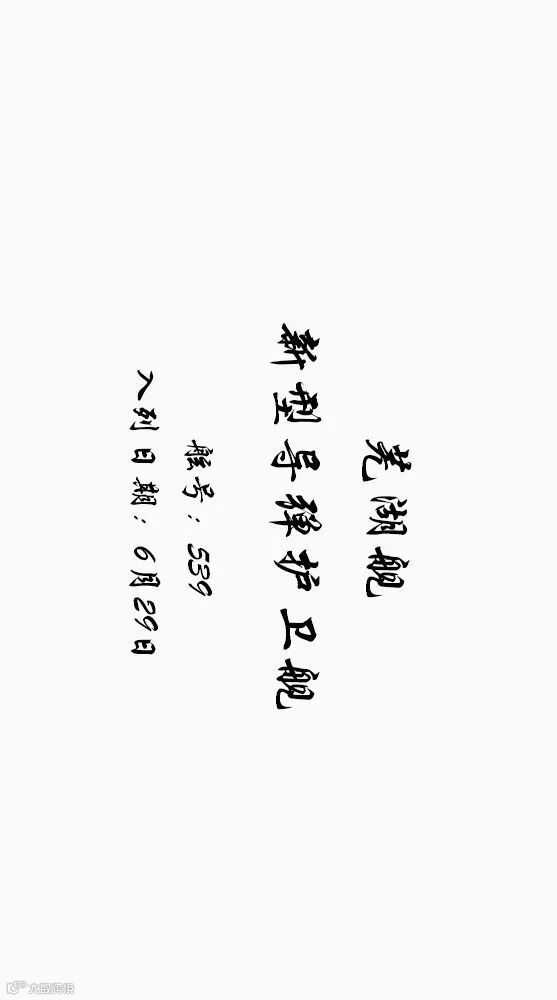 芜湖舰
新型导弹护卫舰
舷号：539
入列日期：6月29日
大数跨境